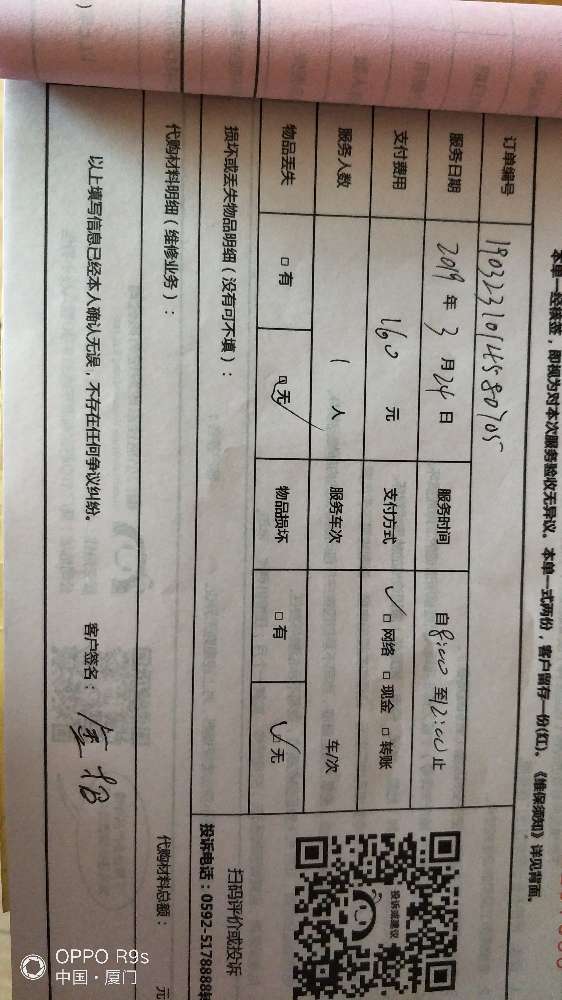 本单一经接签，即视为对本次服务验收无异议。本单一式两份，客户留存一份(红)。《维保须知》详见背面。
订单编号 19032310145 80705
服务日期 2019 年 3 月 24 日 服务时间 自 8:00 至 12:00 止
支付费用 160 元 支付方式 ✓□ 网络 □ 现金 □ 转账
服务人数 1 人 服务车次 车/次
物品丢失 □ 有 ☑ 无 物品损坏 □ 有 ☑ 无
投诉或建议
扫码评价或投诉
投诉电话：0592-5178888转
损坏或丢失物品明细（没有可不填）：
代购材料明细（维修业务）：
代购材料总额： 元
以上填写信息已经本人确认无误，不存在任何争议纠纷。 客户签名：
OPPO R9s
中国·厦门